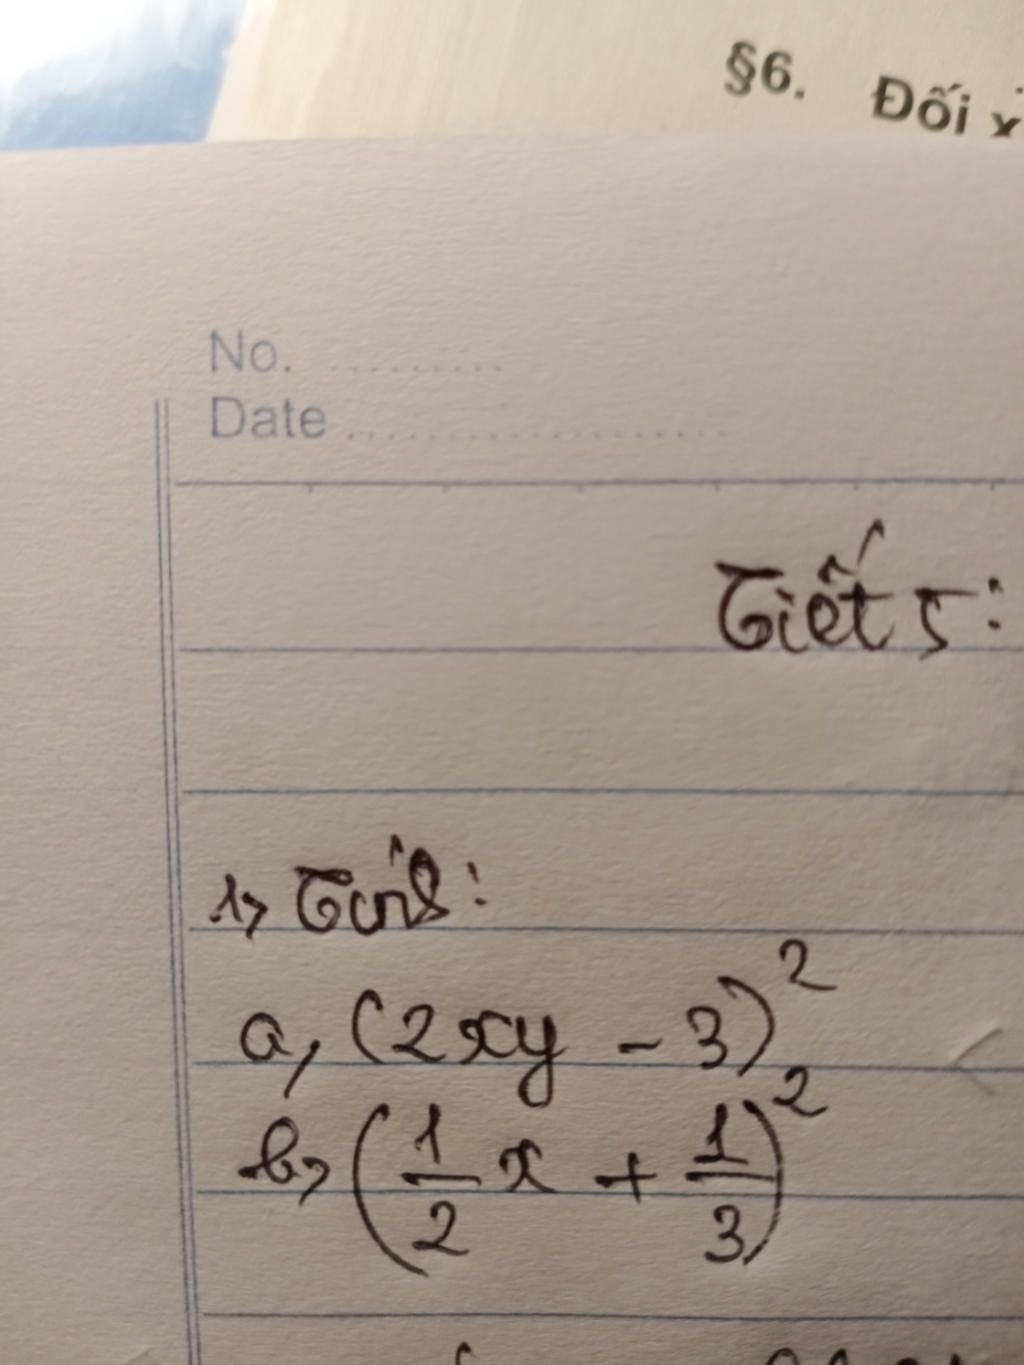 §6. Đối x
No. ..........
Date ......................
Tiết 5:
1, Tính:
a, (2xy - 3)²
b, (1/2 x + 1/3)²